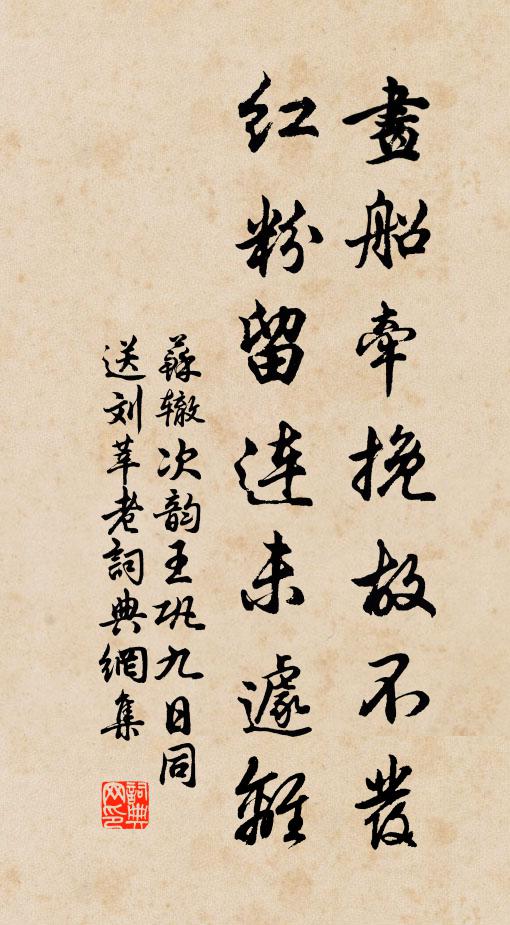 畫船牽挽故不發
紅粉留連未遽離
蘇辙次韵王巩九日同
送刘莘老詞典網集
詞典网印